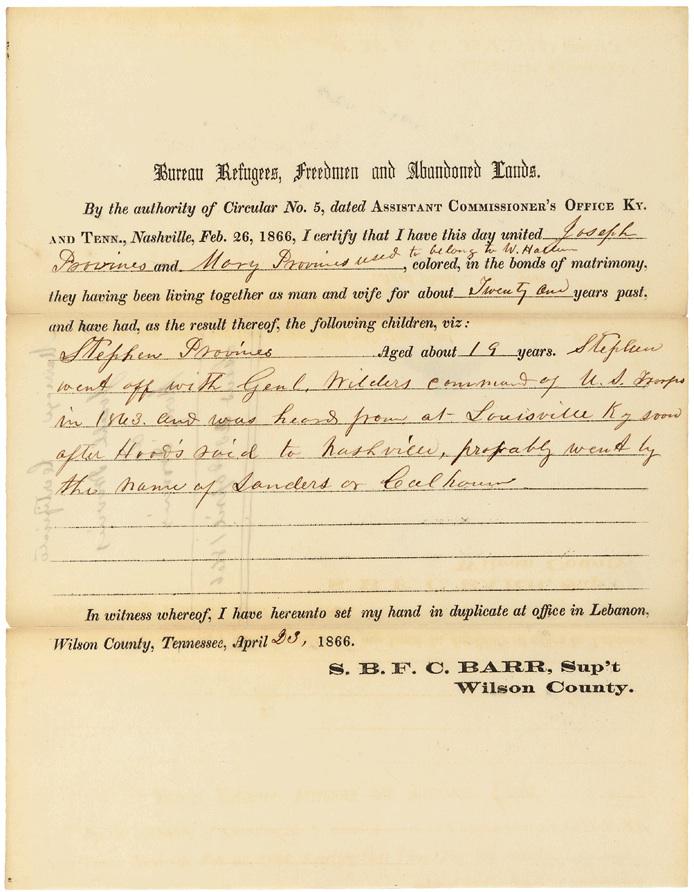 Bureau Refugees, Freedmen and Abandoned Lands.
By the authority of Circular No. 5, dated Assistant Commissioner's Office Ky.
and Tenn., Nashville, Feb. 26, 1866, I certify that I have this day united Joseph
Provines and Mary Provines used to belong to W. , colored, in the bonds of matrimony,
they having been living together as man and wife for about Twenty one years past,
and have had, as the result thereof, the following children, viz:
Stephen Provines Aged about 19 years. Stephen
went off with Genl. Wilders command of U. S. Troops
in 1863. and was heard from at Louisville Ky soon
after Hood's raid to Nashville, probably went by
the name of Sanders or Calhoun
In witness whereof, I have hereunto set my hand in duplicate at office in Lebanon,
Wilson County, Tennessee, April 23, 1866.
S. B. F. C. BARR, Sup't
Wilson County.